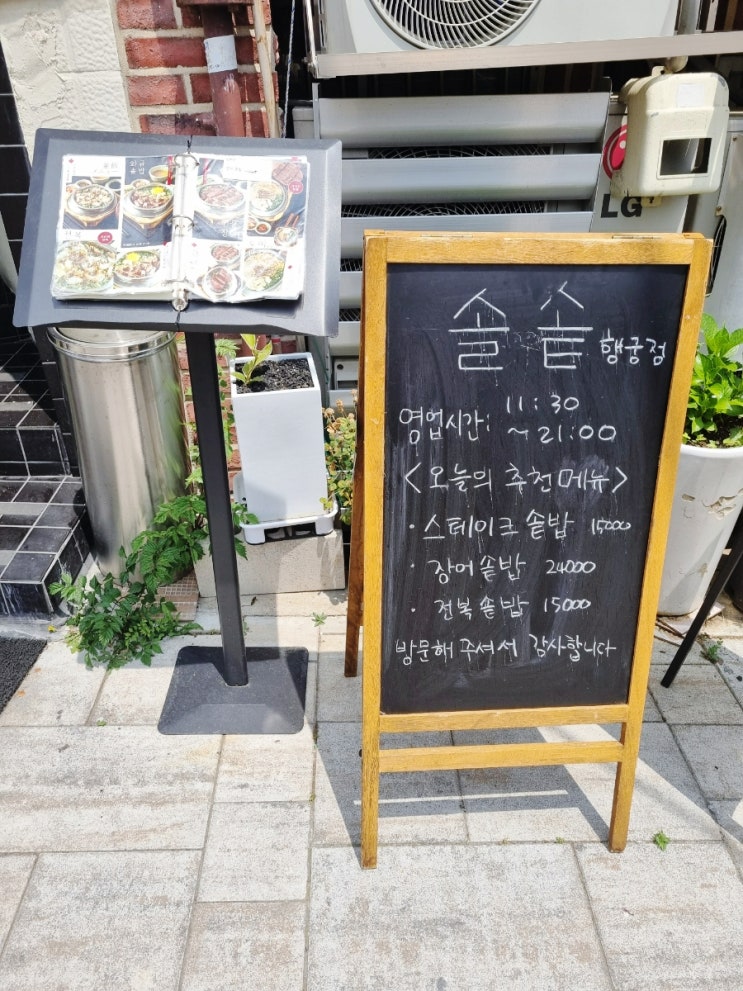 솔솥 행궁점
영업시간: 11:30
~21:00
<오늘의 추천메뉴>
· 스테이크 솥밥 15000
· 장어솥밥 24000
· 전복솥밥 15000
방문해 주셔서 감사합니다
LG